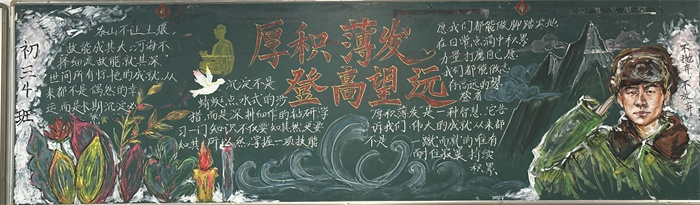 初三十班
泰山不让土壤,
故能成其大;河海不
择细流,故能就其深.
世间所有惊艳的成就,从
来都不是偶然的幸
运,而是长期沉淀
厚积薄发
登高望远
沉淀不是
蜻蜓点水式的涉
猎,而是深耕细作的钻研.学
习一门知识,不仅要知其然,更要
知其所以然;掌握一项技能
愿我们都能做脚踏实地
在日常点滴中积累
力量,打磨自己.愿
我们都能做志
存高远的攀
登者
厚积薄发是一种智慧.它告
诉我们,伟大的成就从来都
不是一蹴而就的,唯有
耐住寂寞,持续
积累.